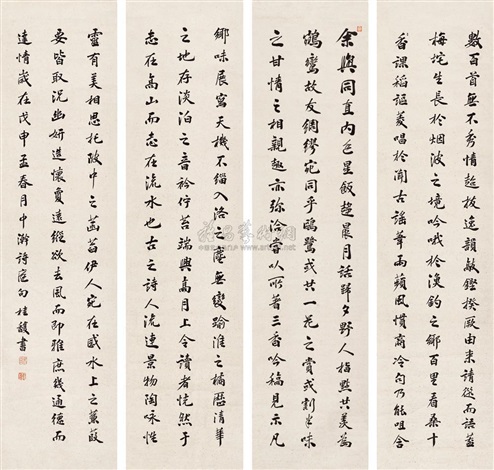 余與同直內邑星飯趨晨月話歸夕野人指點共美為
鶴鸞故友綢繆宛同乎鷗鷺或共一花之賞或割半味
之甘情之相親趣亦弥洽嘗以所著三香吟稿見示凡
數百首無不秀情超拔逸韻敲鏗揆厥由來請從而語蓋
梅坨生長於烟波之境吟哦於漁釣之鄉百里看桑十
香課稻謳菱唱於閒古謠葦雨蘋風慣商冷句乃能咀含
鄉味展寫天機不緇入洛之塵無變瑜淮之橘歷清華
之地存淡泊之音衿佇苔瑞興高月上令讀者恍然于
志在高山而志在流水也古之詩人流連景物陶咏性
靈有美相思托陂中之菡萏伊人宛在感水上之蒹葭
要皆取況幽妍造懷夐遠縱欲去風而即雅庶幾通德而
達情歲在戊申孟春月中澣詩盦句桂馥書